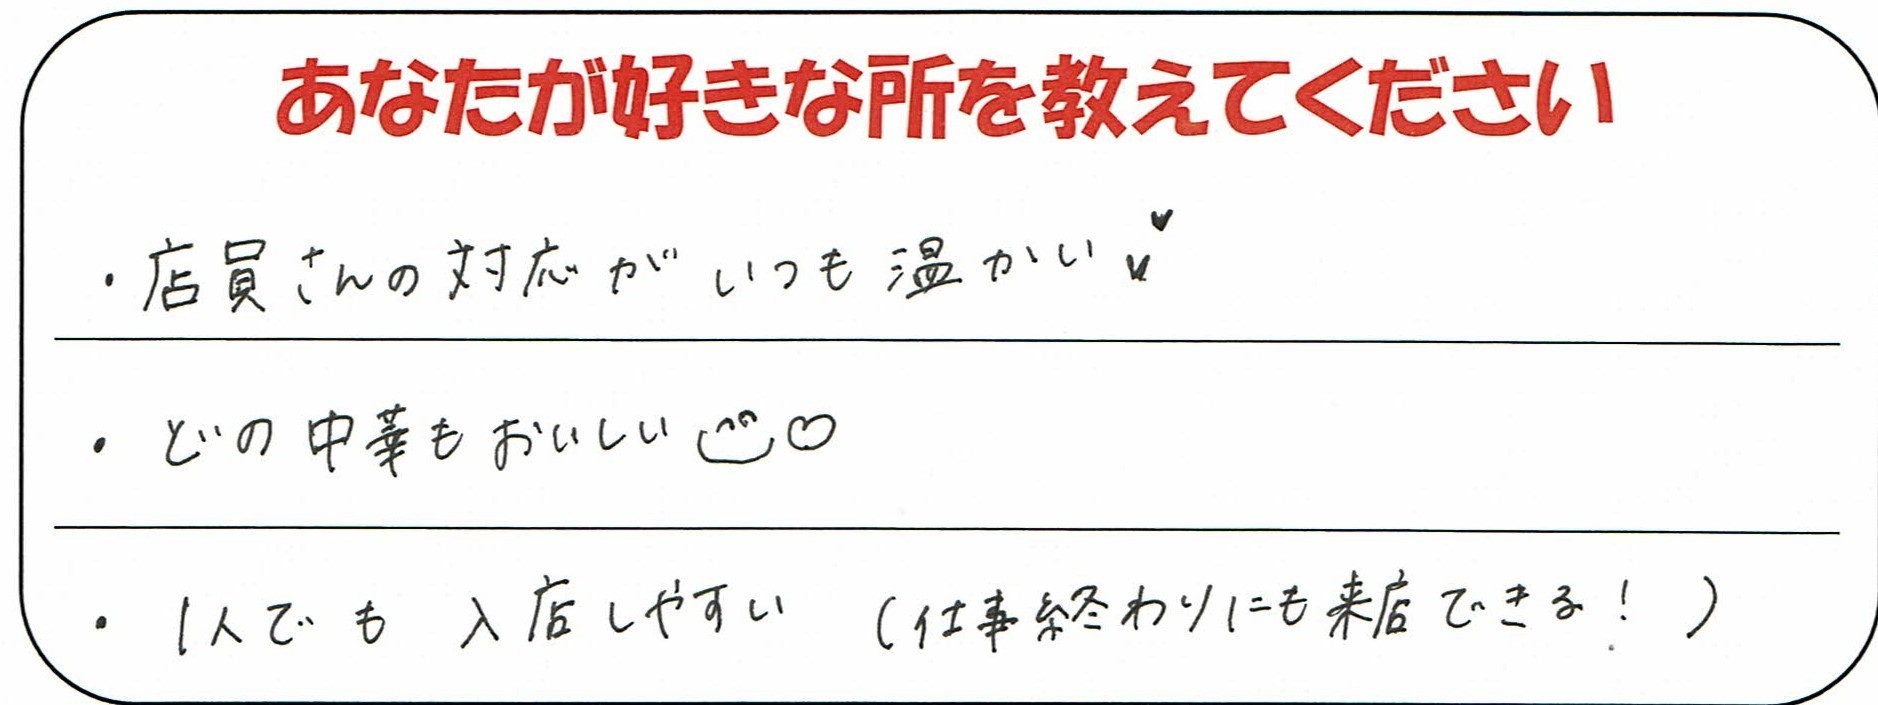 あなたが好きな所を教えてください
・店員さんの対応がいつも温かい♥♥
・どの中華もおいしい
・1人でも入店しやすい (仕事終わりにも来店できる！)